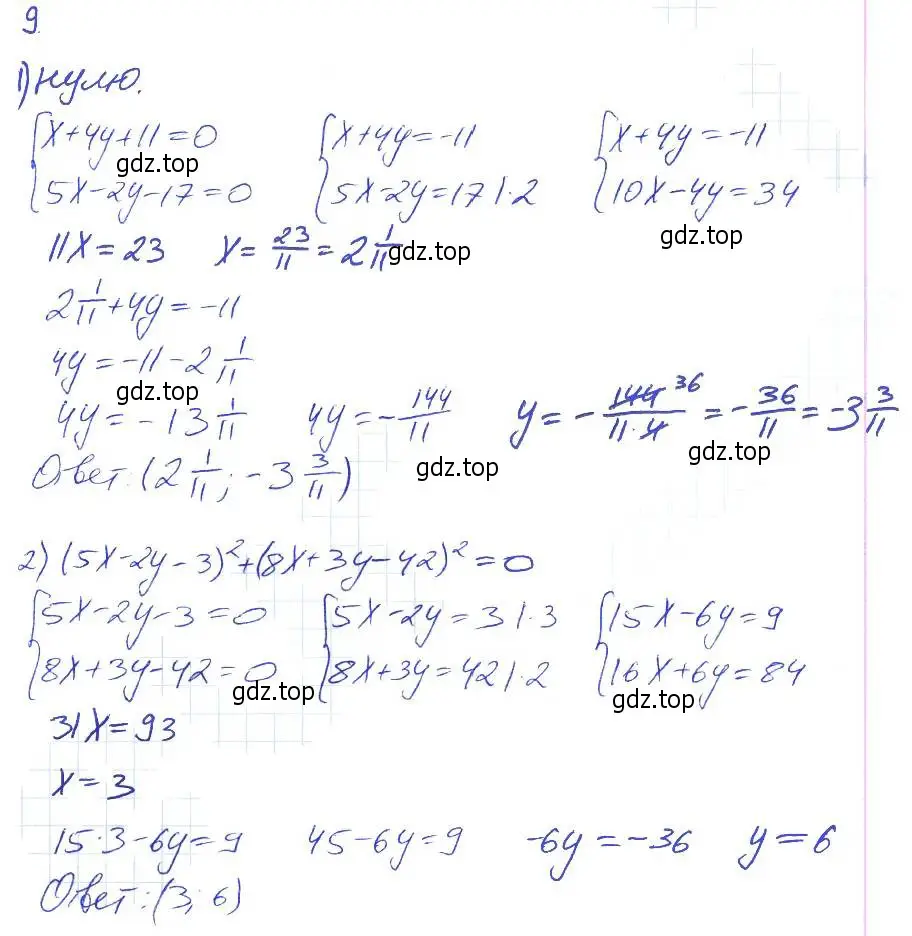 9.
1) нулю.
{x+4y+11=0 {x+4y=-11 {x+4y=-11
gdz.top
{5x-2y-17=0 {5x-2y=17 |·2 {10x-4y=34
gdz.top
11x=23 x=23/11=2 1/11
gdz.top
2 1/11+4y=-11
4y=-11-2 1/11
gdz.top
4y=-13 1/11 4y=-144/11 y=-144 36/11·4=-36/11=-3 3/11
gdz.top gdz.top
Ответ: (2 1/11; -3 3/11)
2) (5x-2y-3)²+(8x+3y-42)²=0
{5x-2y-3=0 {5x-2y=3 |·3 {15x-6y=9
{8x+3y-42=0 {8x+3y=42 |·2 {16x+6y=84
gdz.top gdz.top
31x=93
x=3
15·3-6y=9 45-6y=9 -6y=-36 y=6
Ответ: (3; 6)